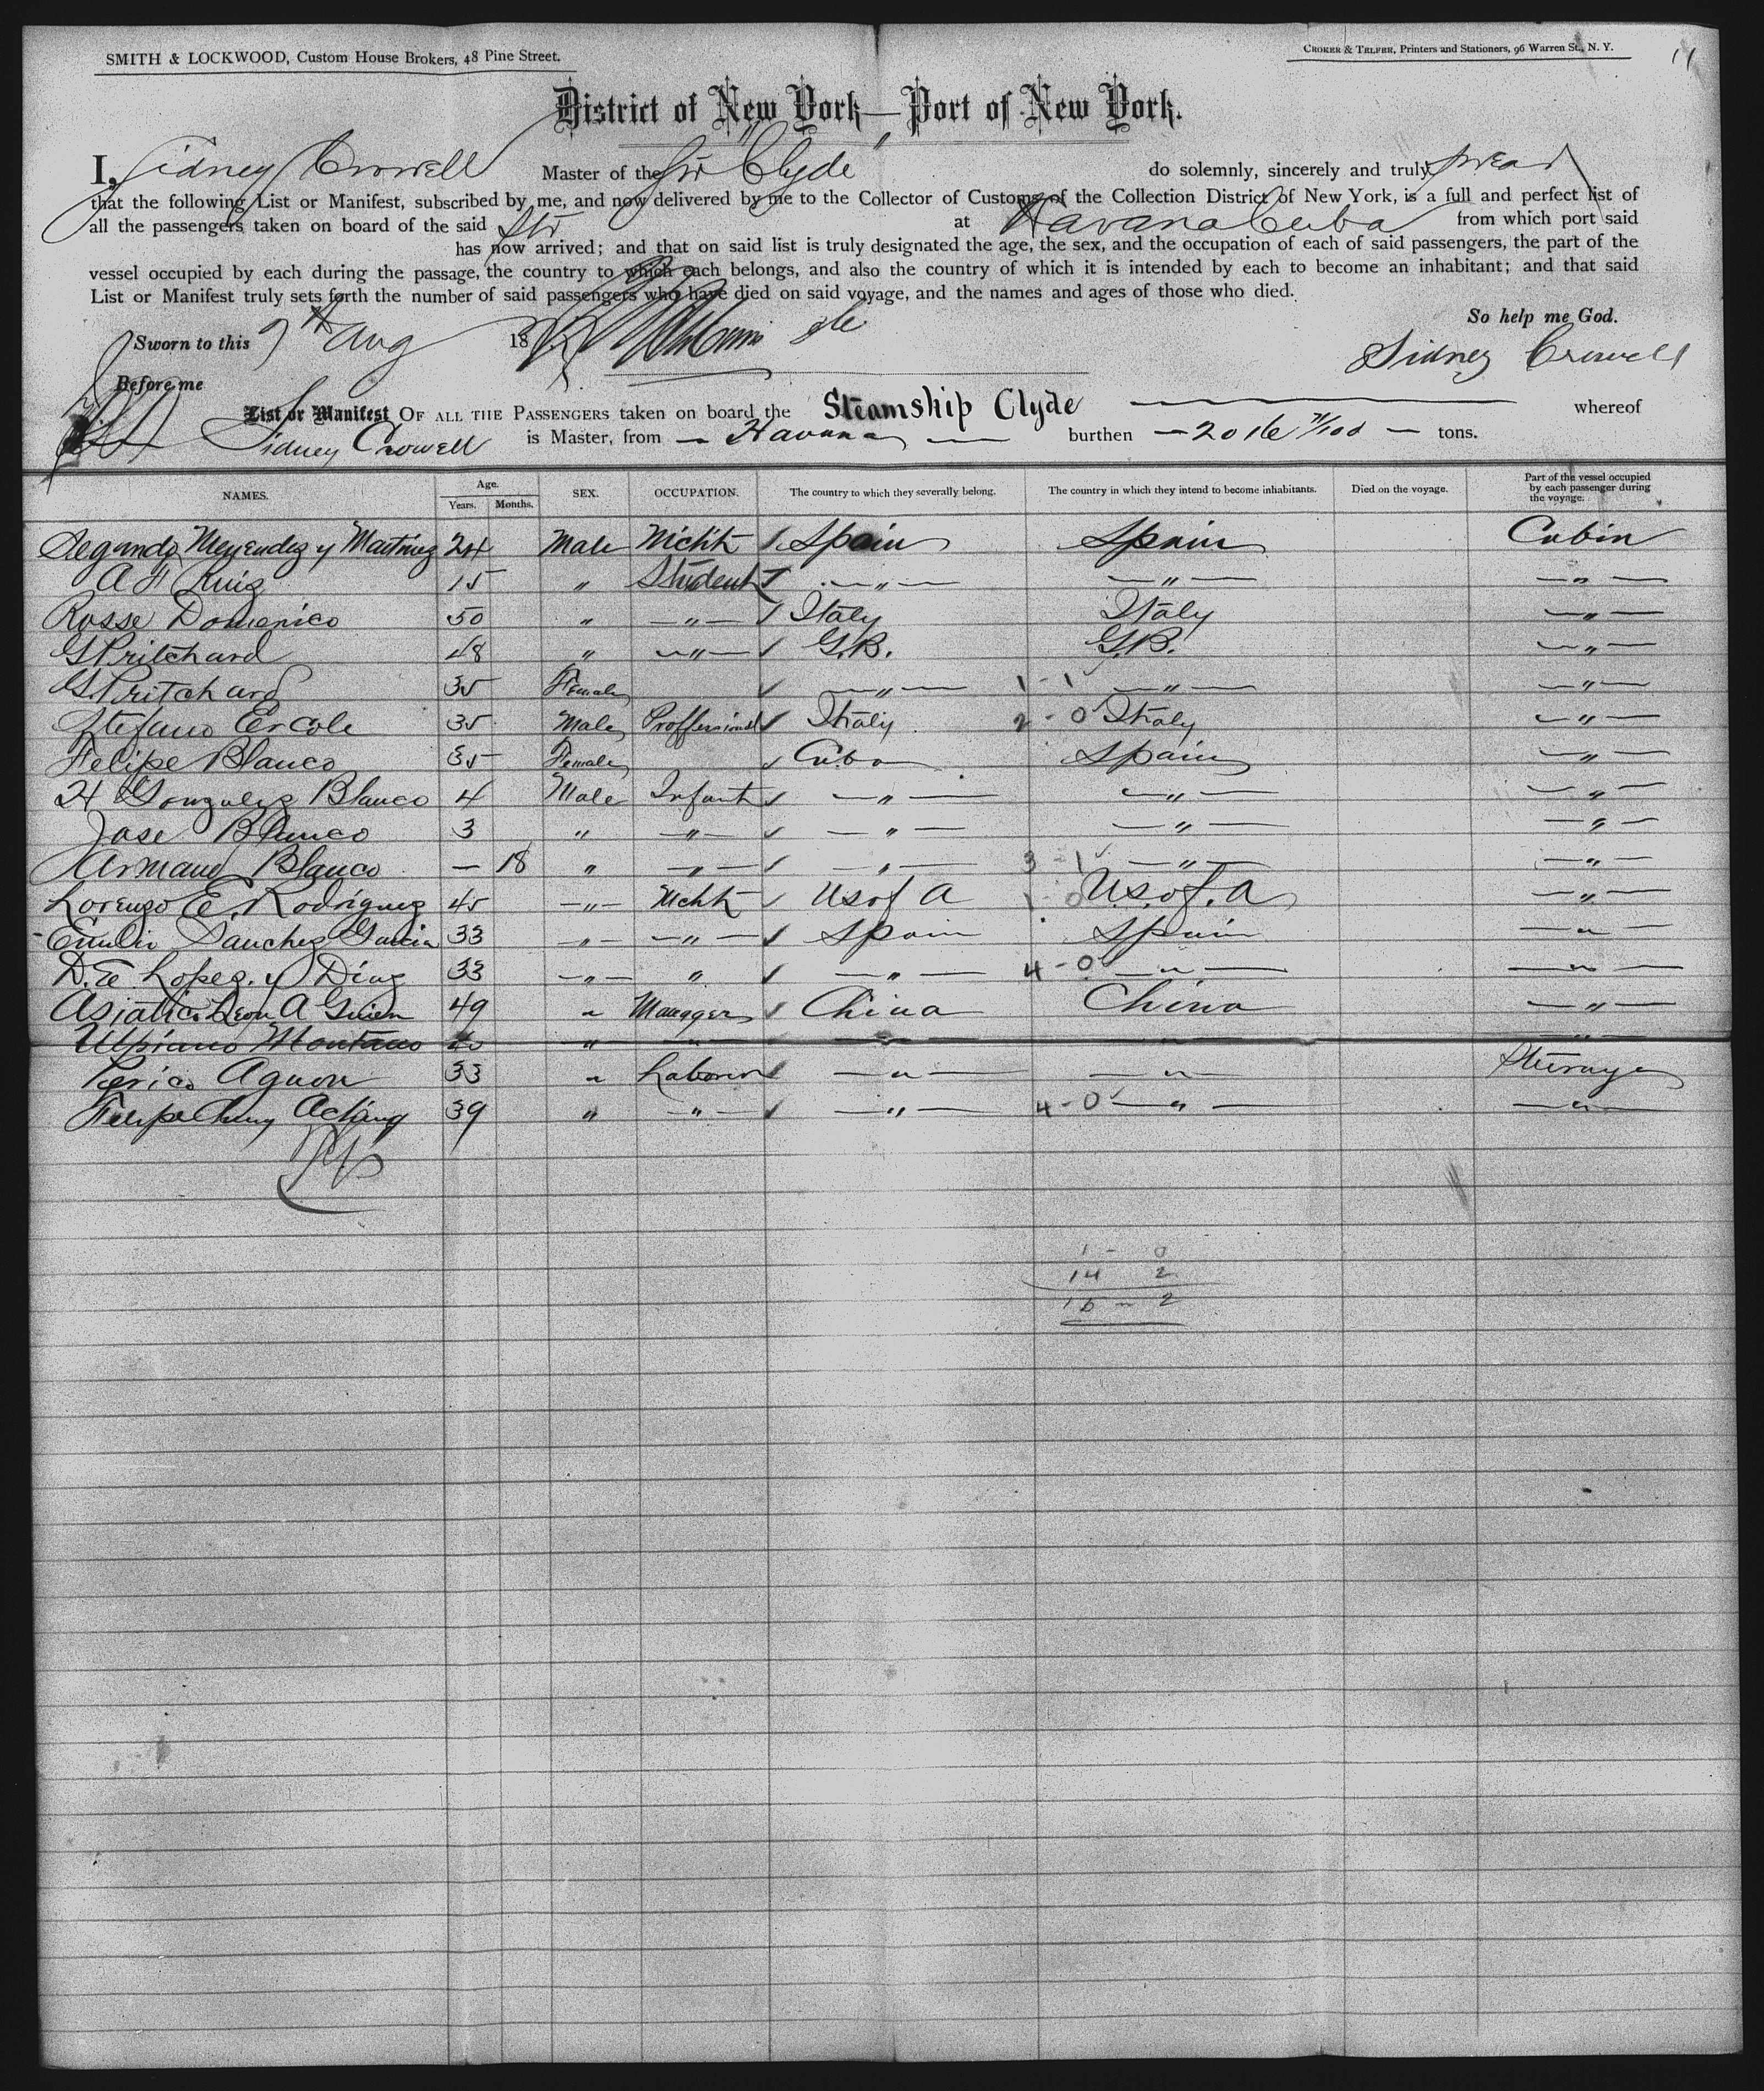 SMITH & LOCKWOOD, Custom House Brokers, 48 Pine Street.
CROKER & TELFER, Printers and Stationers, 96 Warren St., N. Y.
District of New York—Port of New York.
I, Sidney Crowell Master of the Str "Clyde" do solemnly, sincerely and truly swear
that the following List or Manifest, subscribed by me, and now delivered by me to the Collector of Customs of the Collection District of New York, is a full and perfect list of
all the passengers taken on board of the said Str at Havana Cuba from which port said
has now arrived; and that on said list is truly designated the age, the sex, and the occupation of each of said passengers, the part of the
vessel occupied by each during the passage, the country to which each belongs, and also the country of which it is intended by each to become an inhabitant; and that said
List or Manifest truly sets forth the number of said passengers who have died on said voyage, and the names and ages of those who died.
So help me God.
Sworn to this 9th Aug 18
Sidney Crowell
Before me
List or Manifest OF ALL THE PASSENGERS taken on board the Steamship Clyde whereof
Sidney Crowell is Master, from — Havana — burthen — 2016 71/100 — tons.
NAMES. Age. Years. Months. SEX. OCCUPATION. The country to which they severally belong. The country in which they intend to become inhabitants. Died on the voyage. Part of the vessel occupied by each passenger during the voyage.
Segundo Menendez y Martinez 24 Male Mcht Spain Spain Cabin
A F Ruiz 15 " Student — " — — " — — " —
Rosse Domenico 50 " — " — Italy Italy — " —
G Pritchard 48 " — " — G.B. G.B. — " —
G Pritchard 35 Female — " — 1 - 1 — " — — " —
Stefano Ercole 35 Male Proffessional Italy 2 - 0 Italy — " —
Felipe Blanco 35 Female Cuba Spain — " —
H Gonzalez Blanco 4 Male Infant — " — — " — — " —
Jose Blanco 3 " — " — — " — — " — — " —
Armand Blanco — 18 " — " — — " — 3 - 1 — " — — " —
Lorenzo E. Rodriguez 45 — " — Mcht US of A 1 - 0 U.S. of. A — " —
Emilio Sanchez Garcia 33 — " — — " — Spain Spain — " —
D. E. Lopez. y Diaz 33 — " — " — " — 4 - 0 — " — — " —
Asiatico Leon A 49 " Manager China China — " —
Ulpiano Montano " " — " — " "
Perico Aguon 33 " Laborer — " — — " — Steerage
Felipe Chung Achang 39 " — " — — " — 4 - 0 — " — — " —
1 - 0
14 2
15 - 2